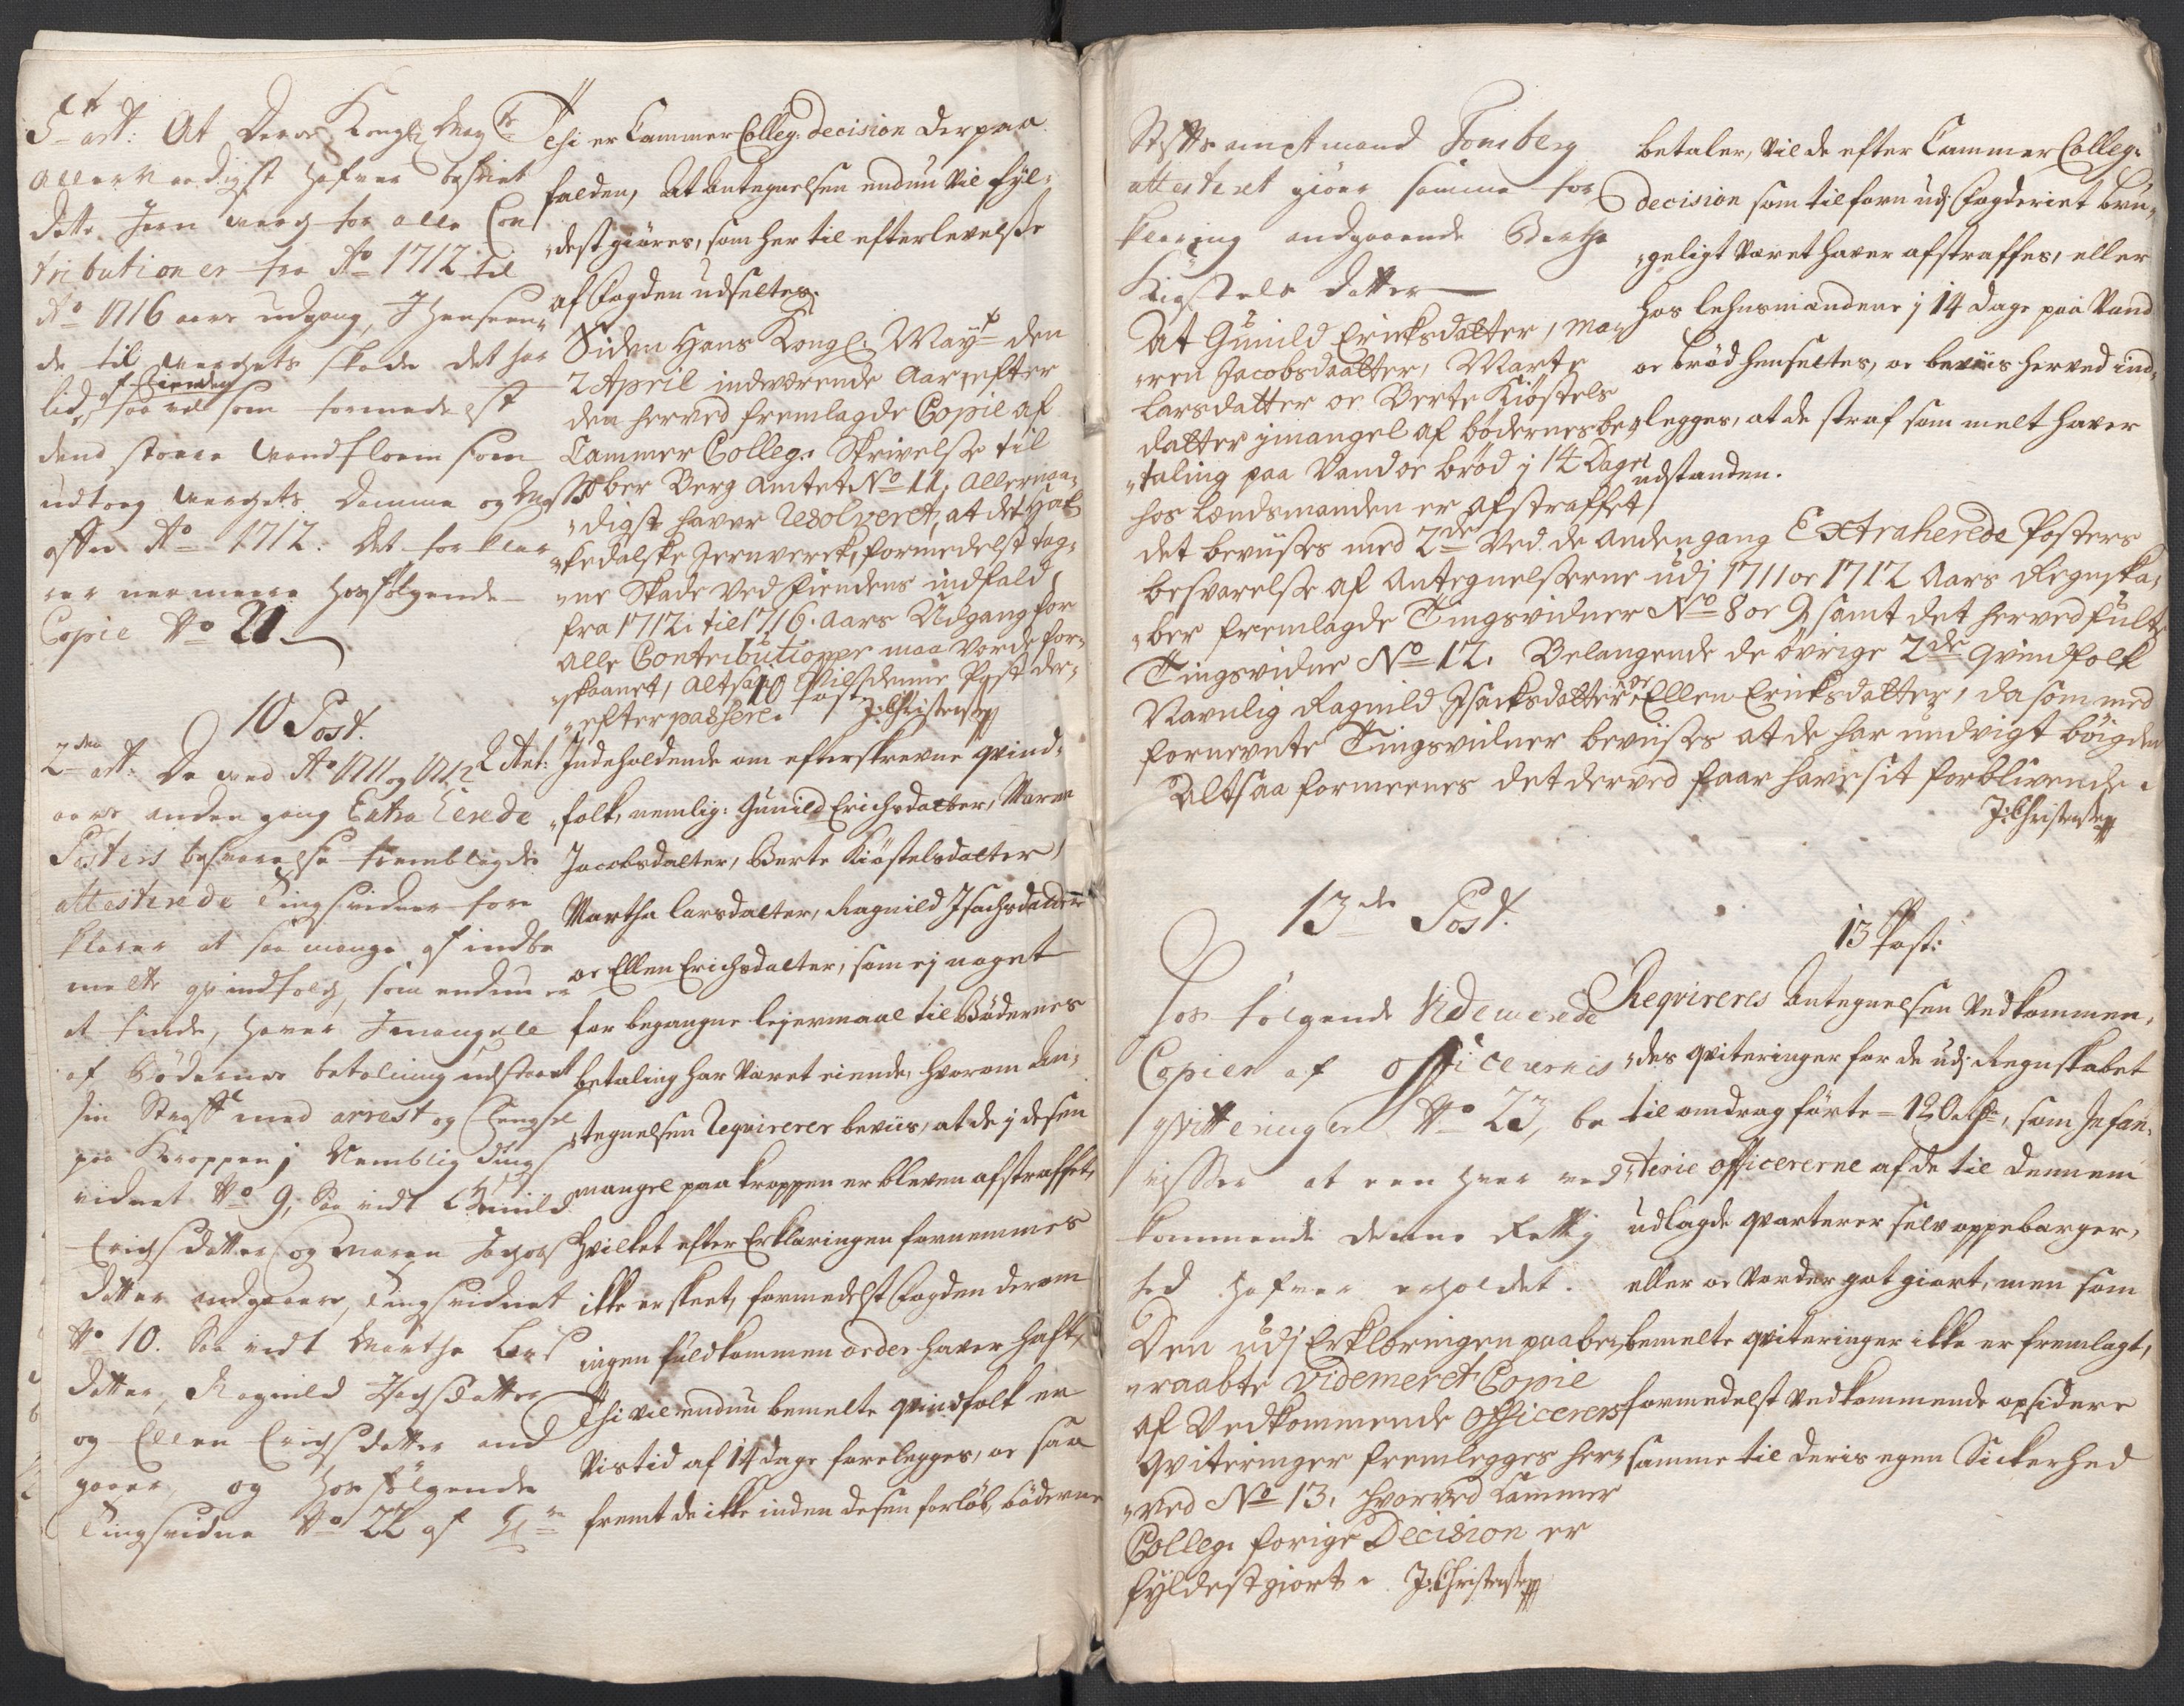 5te ant: At Deres Kongl: May tt
allernaadigst hafver befriet
dette Jern werch for alle Con
tributioner fra Ao 1712 til
Ao 1716 aars udgang, J henseen
de til werchets skade det har
lid, af fienden
saa vel som formedelst
dend storre wandfloem som
udtoeg werchets Damme og
effter Ao 1712. Det for klar
rer nermeere hosfølgende
Copie No 21
10 Post.
2den ant: Da med Ao 1711 og 1712
aars anden gang Extraherede
Posters besvarelse fremblagde
attesterede Tingsvidner for
klarer at saa mange af indbe
melte qvindfolch, som endnu er
at finde, haver J mangele
af Bødernes betaling udstaaet
sin Straff med arrest og fengsel
paa Kroppen; Nemblig Tings
vidnet No 9, Saa vidt Gunild
Erichsdatter og Maren Jacobs
datter andgaaer, Tingsvidnet
No 10. Saa vidt Marthe Lars
datter, Ragnild Isachsdatter
og Ellen Erichsdatter and
gaaer, og hosfølgende
Tingsvidne No 22 af
Thi er Cammer Colleg: decision derpaa
falden, At Antegnelsen endnu vil fyl-
dest giøres, som her til efterlevelse
af Fogden udsettes.
Siden Hans Kongl. Mayt den
2 April indværende Aar, efter
den herved fremlagde Copie af
Cammer Colleg: Skrivelse til
Ober Berg Amtet No 11. Allernaa-
digst haver Resolveret, at det Hak-
kedalske Jernverck, formedelst tag-
ne Skade ved Fiendens indfald,
fra 1712 til 1716. Aars Udgang for
alle Contributioner maa vorde for-
skaanet, altsaa vil denne Post der-
efter passere. J: Christensen
10 Post
2 Ant: Indeholdende om efterskrevne qvind-
folk, nemlig: Gunild Erichsdatter, Maren
Jacobsdatter, Berte Kiøstelsdatter,
Martha Larsdatter, Ragnild Isachsdatter
oc Ellen Erichsdatter, som ej noget
for begangne lejermaal til Bødernes
betaling har været eiende, hvorom An-
tegnelsen Requirerer beviis, at de j desen
mangel paa kroppen er bleven afstraffet,
hvilket efter Erklæringen fornemmes
ikke er skeet, formedelst Fogden derom
ingen fuldkommen order haver hafft,
Thi vil endnu bemelte qvindfolk en
vis tid af 14 dage forelegges, oc saa
fremt de ikke inden desen forløb, bøderne
Stiftsamptmand Tonsberg
attesteret giøer samme for
klaring andgaaende Berthe
Kiøstels datter
At Gunild Ericksdatter, Ma-
ren Jacobsdaatter, Marte
Larsdatter oc Berte Kiøstels
datter j mangel af bødernes be-
taling paa Vand oc brød j 14 Dage
hos Lændsmanden er afstraffet,
det beviises med 2de ved de anden gang Extraherede Posters
besvarelse af Antegnelserne udj 1711 oc 1712 Aars Regnska-
ber fremlagde Tingsvidner No 8 oc 9 samt det herved fulte
Tingsvidne No 12. Belangende de øvrige 2de qvindfolk
Navnlig Ragnild Isacksdatter oc Ellen Ericksdatter, da som med
fornevnte Tingsvidner beviises at de har undvigt bøigden
Altsaa formeenes det derved faar have sit forblivende.
J: Christensen
betaler, vil de efter Cammer Colleg:
decision som tilforn udj Fogderiet bru-
geligt været haver afstraffes, eller
hos lehnsmandene j 14 dage paa Vand
oc brød hensettes, oc beviis herved ind-
legges, at de straf som melt haver
udstanden.
13de Post.
Hos følgende Videmerede
Copier af officerernis
qvitteringer No 23, be
visser at een hver ved
kommende denne Rettig
hed hafver erholdet.
Den udj Erklæringen paabe-
raabte Videmeret Copie
af Vedkommende Officerers
Qviteringer fremlegges her-
ved No 13. hvorved Cammer
Colleg: forige Decision er
fyldestgiort. J: Christensen
13 Post:
Reqvireres Antegnelsen Vedkommen-
des qviteringer for de udj Regnskabet
til omdrag førte 120 rdr, som Infan-
terie officererne af de til dennem
udlagde qvarterer selv oppebarger,
eller oc vorder got giort, men som
bemelte qviteringer ikke er fremlagt,
formedelst vedkommende opsidere
samme til deris egen Sickerhed